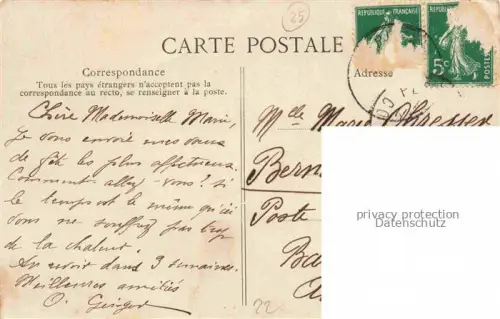 25
RÉPUBLIQUE FRANÇAISE
RÉPUBLIQUE
5c
POSTES
CARTE POSTALE
Correspondance
Tous les pays étrangers n'acceptent pas la
correspondance au recto, se renseigner à la poste.
Adresse
Chère Mademoiselle Marie,
Je vous envoie mes vœux
de fête les plus affectueux.
Comment allez-vous? si
le temps est le même qu'ici
vous ne souffrez pas trop
de la chaleur.
Au revoir dans 3 semaines.
Meilleures amitiés
O.
Mlle Marie
Bern
Poste
Ba
22
privacy protection
Datenschutz